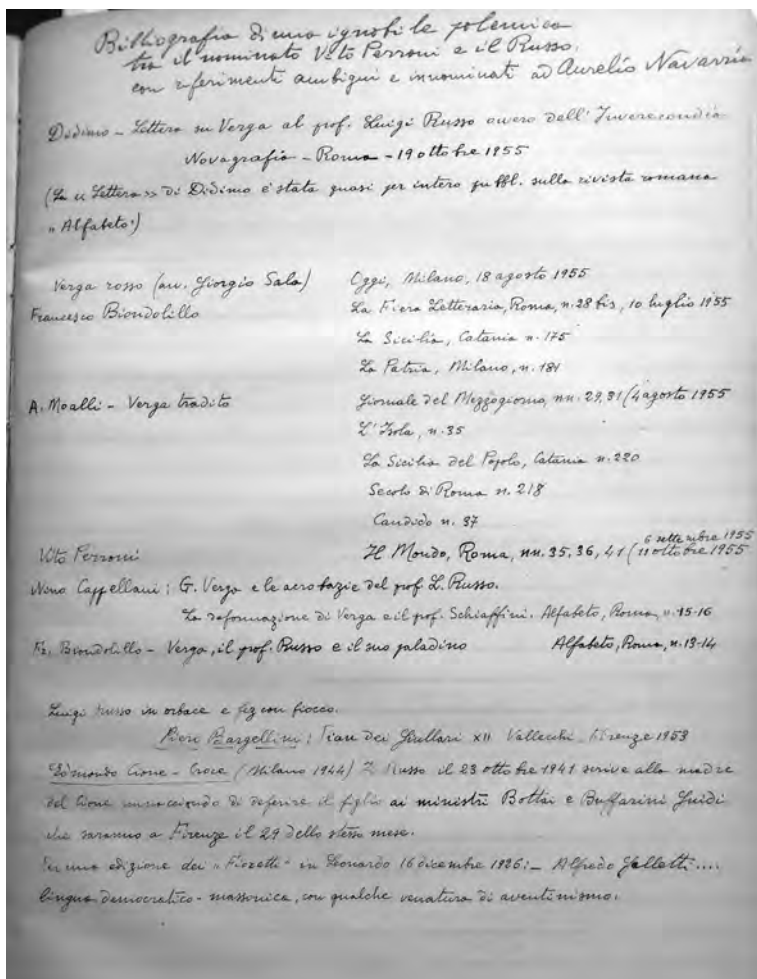 Bibliografia di una ignobile polemica
tra il nominato Vito Perroni e il Russo.
con riferimenti ambigui e innominati ad Aurelio Navarria
Didimo - Lettera su Verga al prof. Luigi Russo ovvero dell'Inverecondia
Novagrafia - Roma - 19 ottobre 1955
(La « Lettera » di Didimo è stata quasi per intero pubbl. sulla rivista romana
"Alfabeto")
Verga rosso (avv. Giorgio Sala) Oggi, Milano, 18 agosto 1955
Francesco Biondolillo La Fiera Letteraria, Roma, n. 28 bis, 10 luglio 1955
La Sicilia, Catania n. 175
La Patria, Milano, n. 181
A. Moalli - Verga tradito Giornale del Mezzogiorno, nn. 29, 31 (4 agosto 1955
L'Isola, n. 35
La Sicilia del Popolo, Catania n. 220
Secolo di Roma n. 218
Candido n. 37
Vito Perroni Il Mondo, Roma, nn. 35, 36, 41 (6 settembre 1955
11 ottobre 1955
Nino Cappellani : G. Verga e le acrobazie del prof. L. Russo.
La deformazione di Verga e il prof. Schiaffini. Alfabeto, Roma, n. 15-16
Fr. Biondolillo - Verga, il prof. Russo e il suo paladino Alfabeto, Roma, n. 13-14
Luigi Russo in orbace e fez con fiocco.
Piero Bargellini : Pian dei Giullari XII Vallecchi - Firenze 1953
Edmondo Cione - Croce (Milano 1944) Il Russo il 23 ottobre 1941 scrive alla madre
del Cione minacciando di deferire il figlio ai ministri Bottai e Buffarini Guidi
che saranno a Firenze il 29 dello stesso mese.
Per una edizione dei "Fioretti" in Leonardo 16 dicembre 1926 : - Alfredo Galletti ....
lingua democratico-massonica, con qualche venatura di aventinismo.